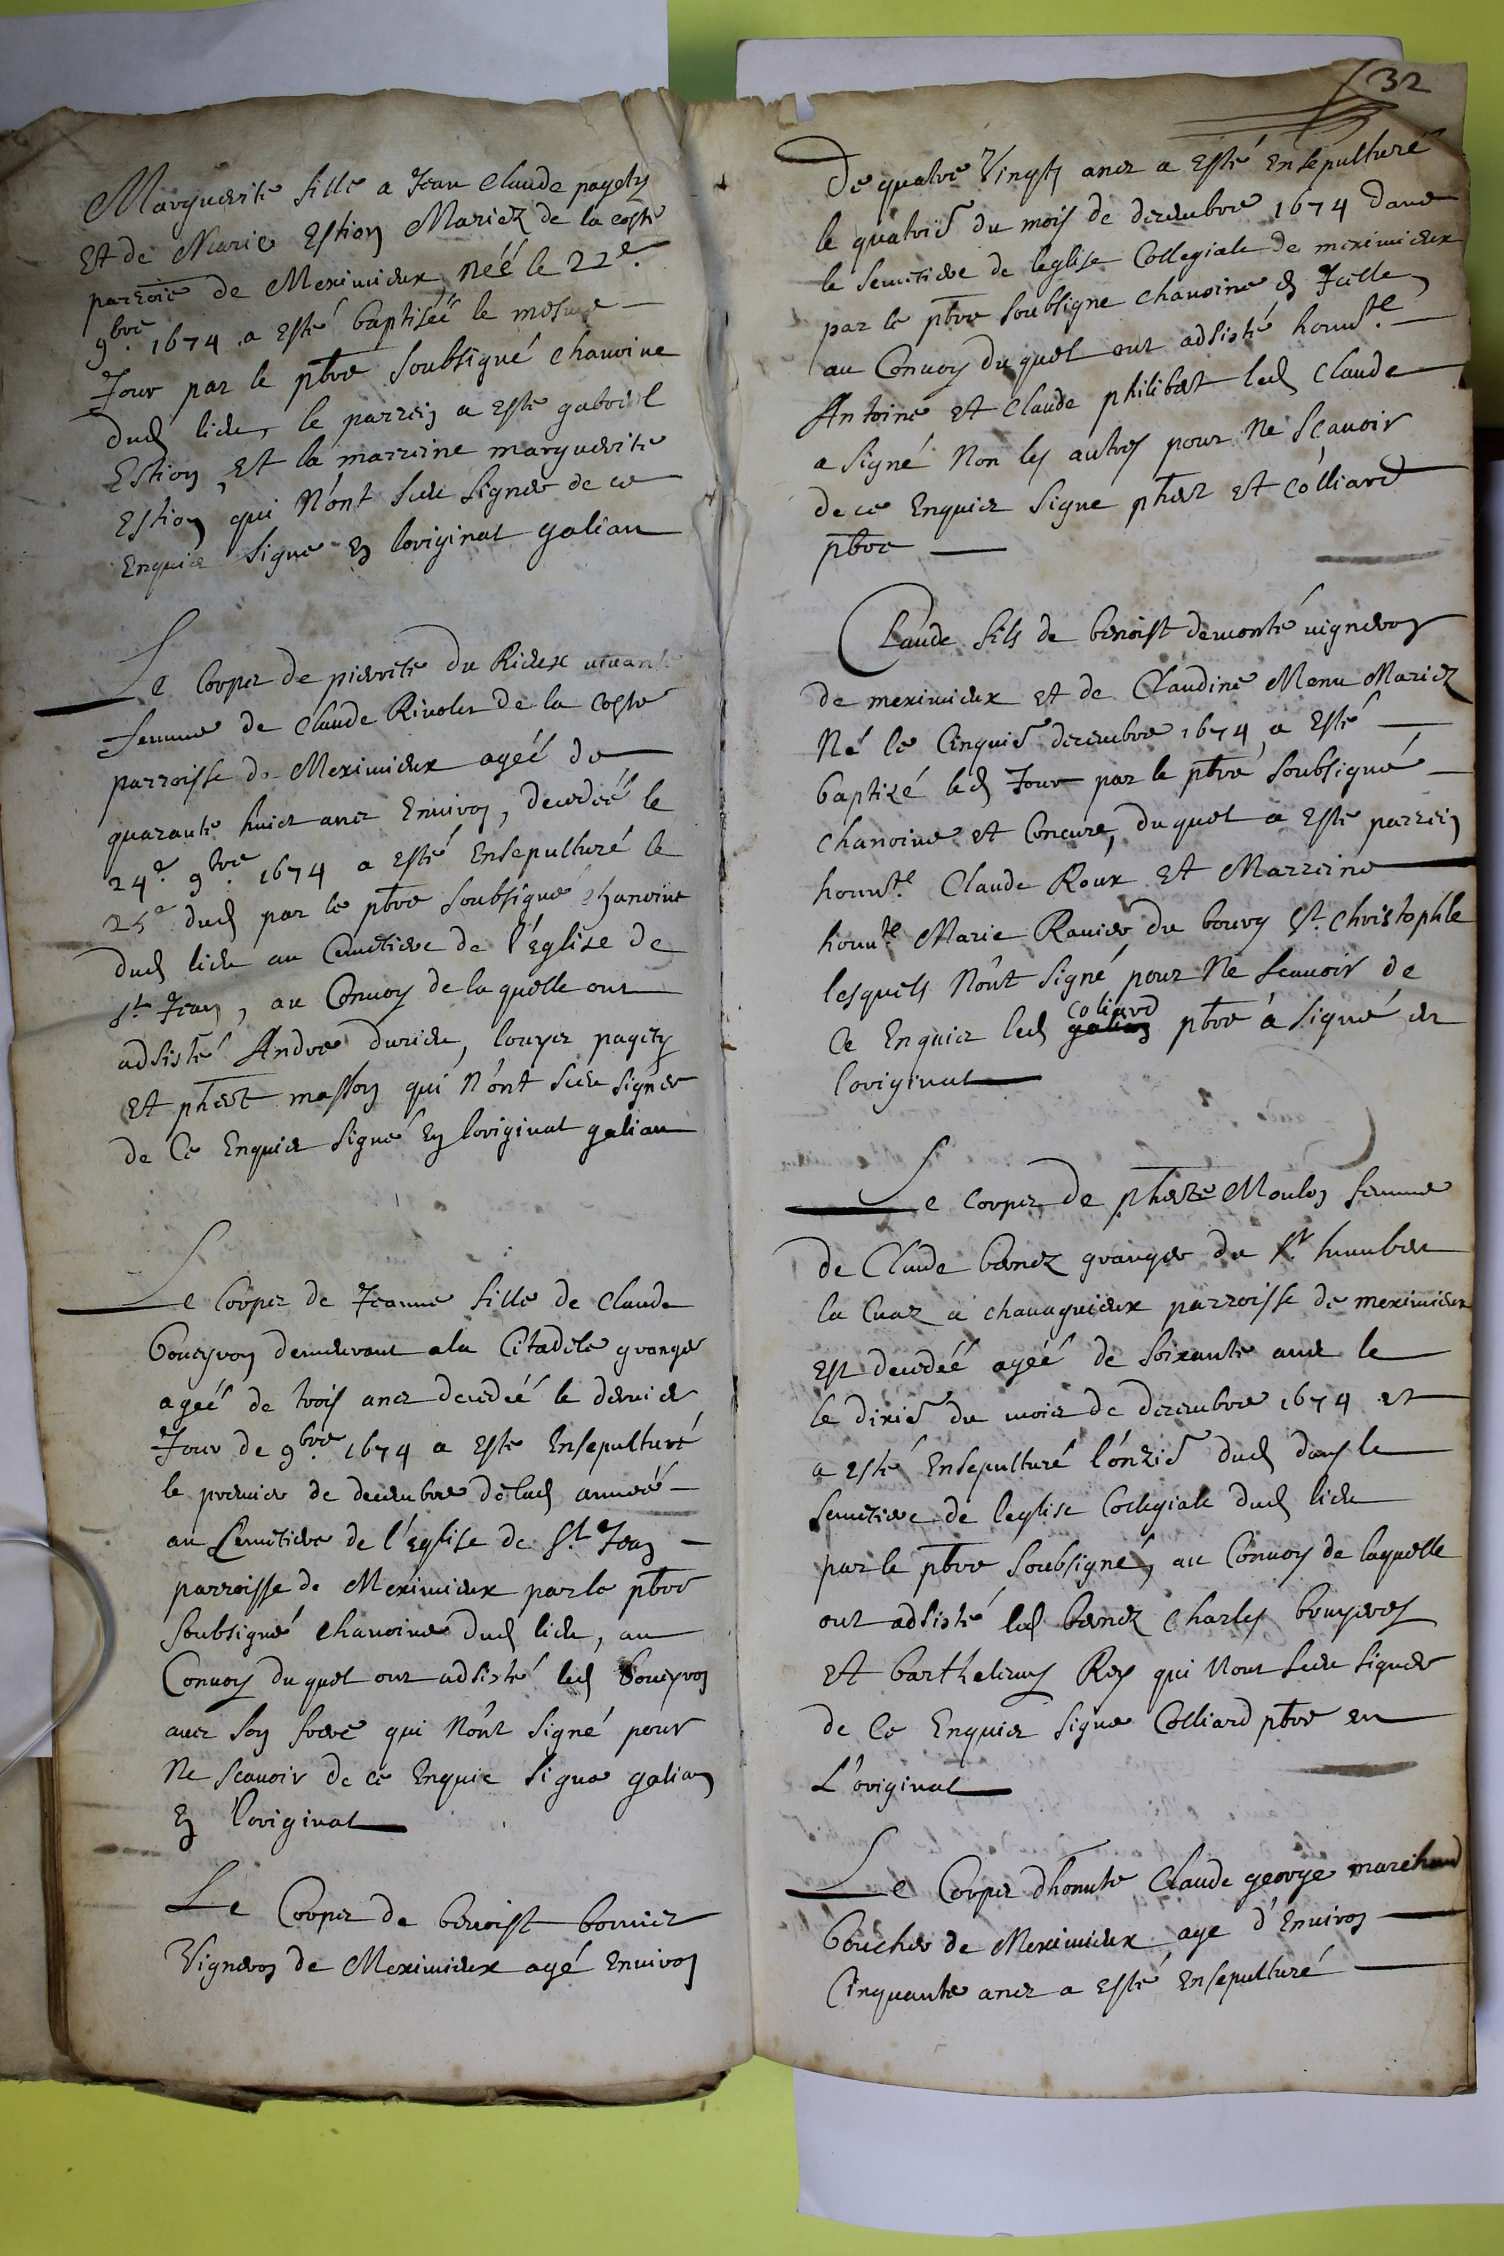 Marguerite fille a Jean Claude pagety
Et de Marie Estion Mariez de la coste
parroie de Meximieux Neé le 22e
9bre 1674 a esté baptiseé le mesme
Jour par le pbre soubsigné chanoine
dud lieu, le parrein a este gabriel
Estion, Et la marreine marguerite
Estion qui N'ont sceu signer de ce
Enquis signe En l'original galian
Le Corps de pierrete du Rieux vivante
femme de Claude Rivolet de la coste
parroisse de Meximieux ageé de
quarante huict ans Environ, decedeé le
24e 9bre 1674 a esté Ensepulturé le
25e dud par le pbre soubsigné chanoine
dud lieu au Cemetiere de l'Eglise de
St Jean, au Convoy de la quelle ont
adsisté Andre durieu, louys pagety
et phert masson qui N'ont sceu signer
de Ce Enquis signé En l'original galian
Le Corps de Jeanne fille de Claude
bouyron demeurant a la Citadele granger
ageé de trois ans decedeé le dernier
Jour de 9bre 1674 a este Ensepulturé
le premier de decembre de lad anneé
au Cemetiere de l'Eglise de St Jean
parroisse de Meximieux par le pbre
soubsigné chanoine dud lieu, au
Convoy du quel ont adsisté led bouyron
avec son frere qui N'ont signé pour
Ne scavoir de ce Enquis signe galian
En l'original
Le Corps de benoist bornier
Vigneron de Meximieux agé Environ
32
De quatre Vingts ans a esté Ensepulturé
le quatrie du mois de decembre 1674 dans
le semetiere de leglise Collegiale de meximieux
par le pbre soubsigne chanoine En Icelle
au Convoy du quel ont adsisté honnste
Antoine et Claude philibert led Claude
a signé Non les autres pour Ne sçavoir
de ce Enquis signe phert et Colliard
pbre
Claude fils de benoist demonté vigneron
de meximieux et de Claudine Menu Mariez
Né le Cinquie decembre 1674, a esté
baptizé led Jour par le pbre soubsigné
Chanoine et Concure, du quel a este parrein
honnste Claude Roux et Marreine
honnte Marie Ravier du bourg St Christophle
lesquels N'ont signé pour Ne scavoir de
Coliard
Ce Enquis led galian pbre a signé en
l'original
Le Corps de pherte Moulon femme
de Claude bernez granger du sr humbert
la Cuaz a chavagnieux parroisse de meximieux
est decedeé ageé de soixante ans le
le dixie du mois de decembre 1674 et
a esté Ensepulturé l'onzie dud dans le
semetiere de leglise Collegiale dud lieu
par le pbre soubsigné, au Convoy de laquelle
ont adsisté led bernez Charles bruyeres
et barthelemy Rey qui N'ont sceu signer
de Ce Enquis signe Colliard pbre en
L'original
Le Corps d'honnte Claude george marchand
boucher de Meximieux age d'Environ
Cinquante ans a esté Ensepulturé